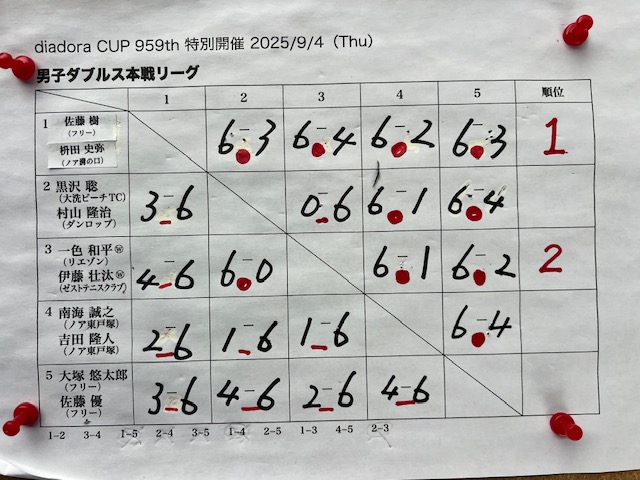 diadora CUP 959th 特別開催 2025/9/4（Thu）
男子ダブルス本戦リーグ
1 2 3 4 5 順位
1 佐藤 樹
（フリー）
枡田 史弥
（ノア溝の口）
6-3 6-4 6-2 6-3 1
2 黒沢 聡
（大洗ビーチTC）
村山 隆治
（ダンロップ）
3-6 0-6 6-1 6-4
3 一色 和平Ⓦ
（リエゾン）
伊藤 壮汰Ⓦ
（ゼストテニスクラブ）
4-6 6-0 6-1 6-2 2
4 南海 誠之
（ノア東戸塚）
吉田 隆人
（ノア東戸塚）
2-6 1-6 1-6 6-4
5 大塚 悠太郎
（フリー）
佐藤 優
（フリー）
3-6 4-6 2-6 4-6
1-2 3-4 1-5 2-4 3-5 1-4 2-5 1-3 4-5 2-3